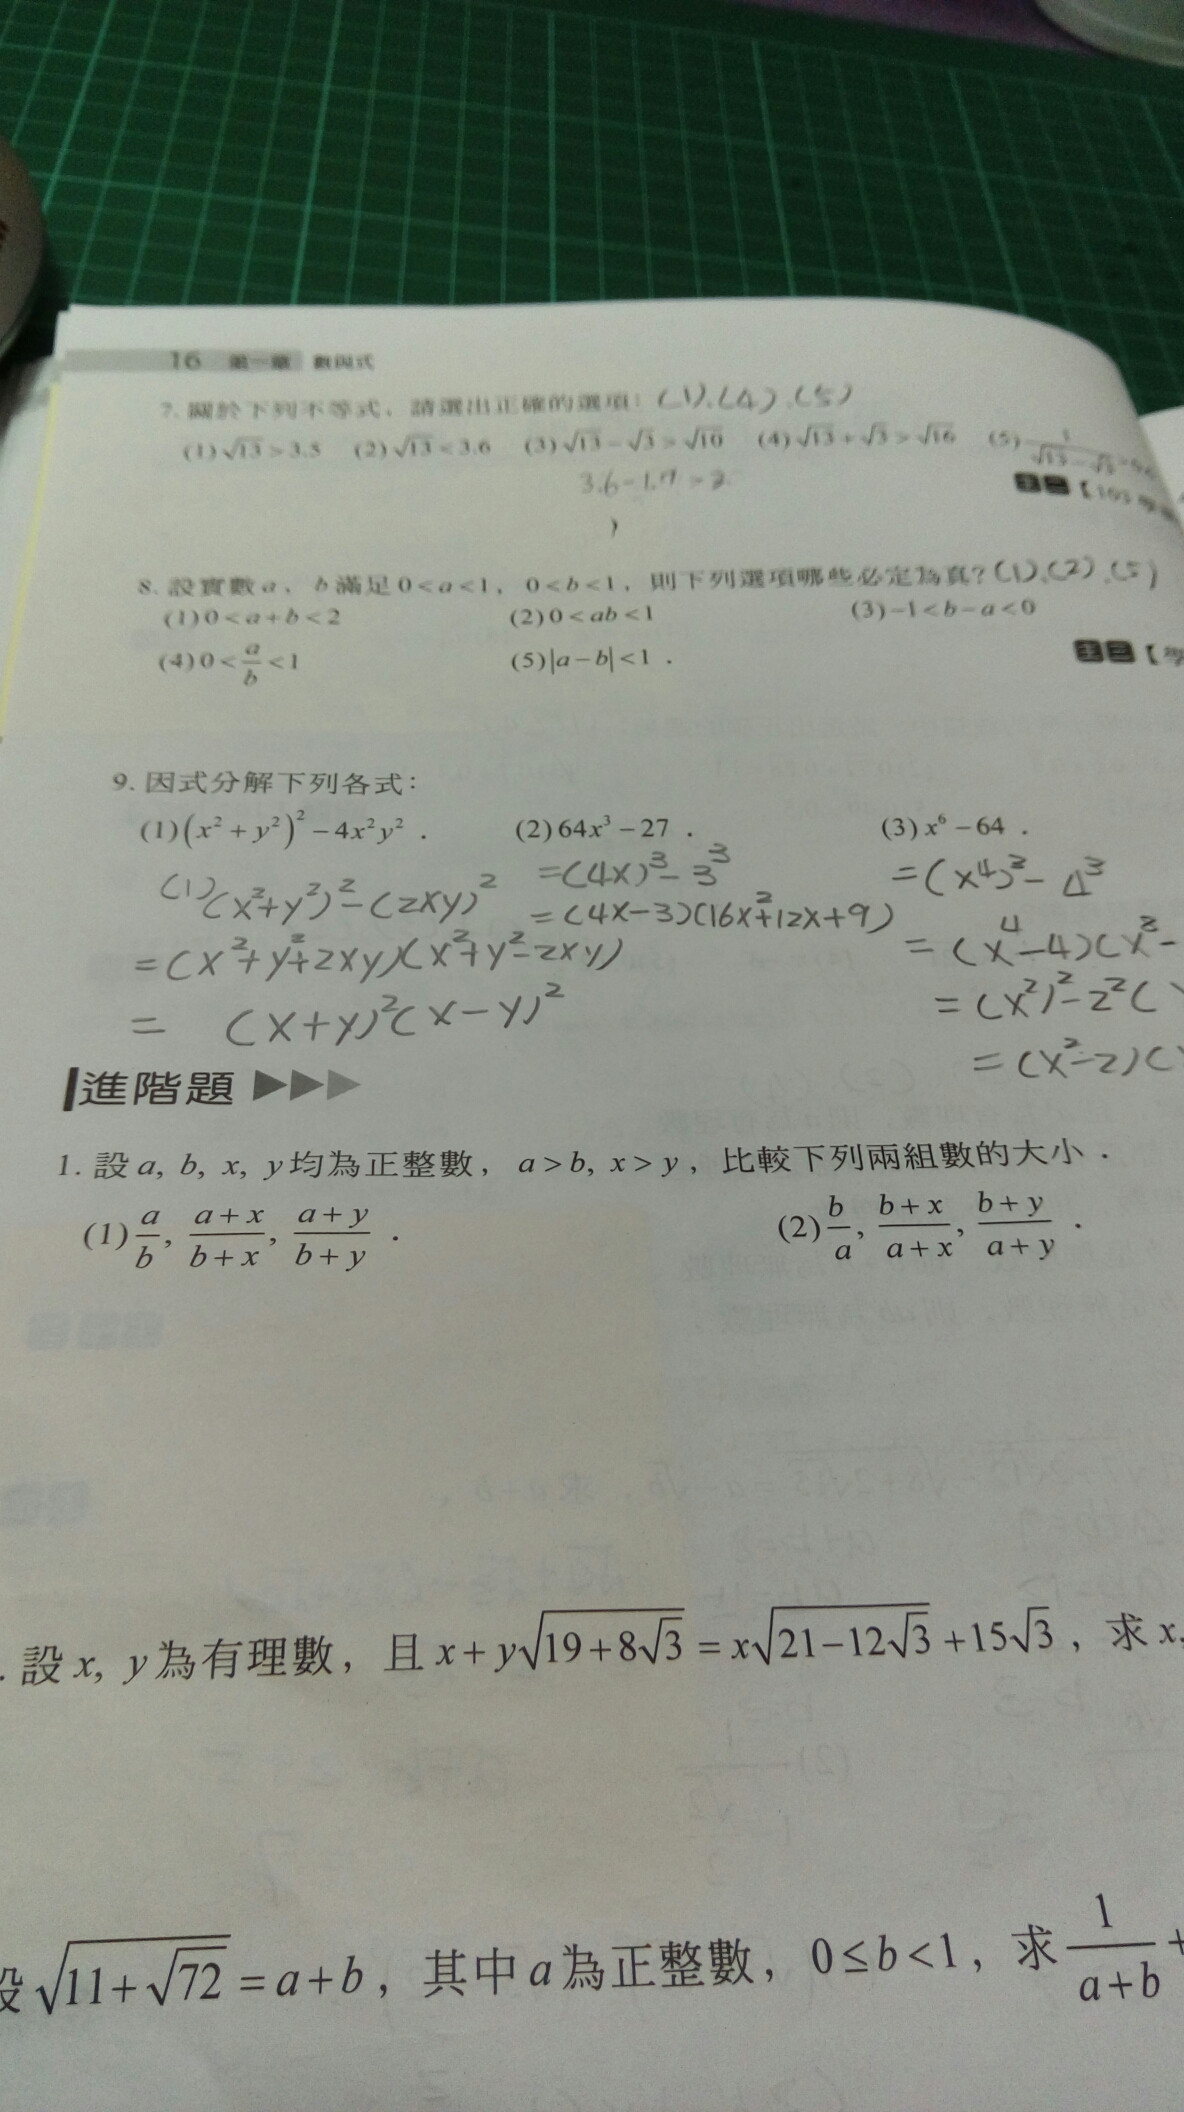 16 第一章 數與式
7. 關於下列不等式，請選出正確的選項：(1).(4).(5)
(1)√13 > 3.5 (2)√13 < 3.6 (3)√13 − √3 > √10 (4)√13 + √3 > √16 (5) 1/(√13 − √3)
3.6-1.7=2
8. 設實數 a，b 滿足 0 < a < 1，0 < b < 1，則下列選項哪些必定為真？(1).(2).(5)
(1) 0 < a + b < 2 (2) 0 < ab < 1 (3) −1 < b − a < 0
(4) 0 < a/b < 1 (5) |a − b| < 1．
【學
9. 因式分解下列各式：
(1) (x² + y²)² − 4x²y²． (2) 64x³ − 27． (3) x⁶ − 64．
(1)(x²+y²)²-(2xy)² =(4x)³-3³ =(x⁴)³-4³
=(x²+y²+2xy)(x²+y²-2xy) =(4x-3)(16x²+12x+9) =(x⁴-4)(x²-
=(x+y)²(x-y)² =(x²)²-2²(
=(x²-2)(
進階題
1. 設 a, b, x, y 均為正整數，a > b, x > y，比較下列兩組數的大小．
(1) a/b, (a+x)/(b+x), (a+y)/(b+y)． (2) b/a, (b+x)/(a+x), (b+y)/(a+y)．
. 設 x, y 為有理數，且 x + y√(19+8√3) = x√(21−12√3) + 15√3，求 x,
設 √(11+√72) = a + b，其中 a 為正整數，0 ≤ b < 1，求 1/(a+b) +